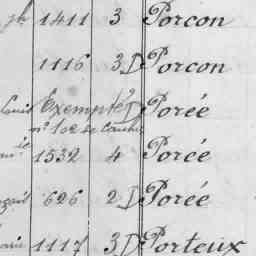 ph 1411 3 Porcon
1116 3 D Porcon
Louis Exempté D Porée
n° 102 de
1532 4 Porée
626 2 D Porée
1117 3 D Porteux